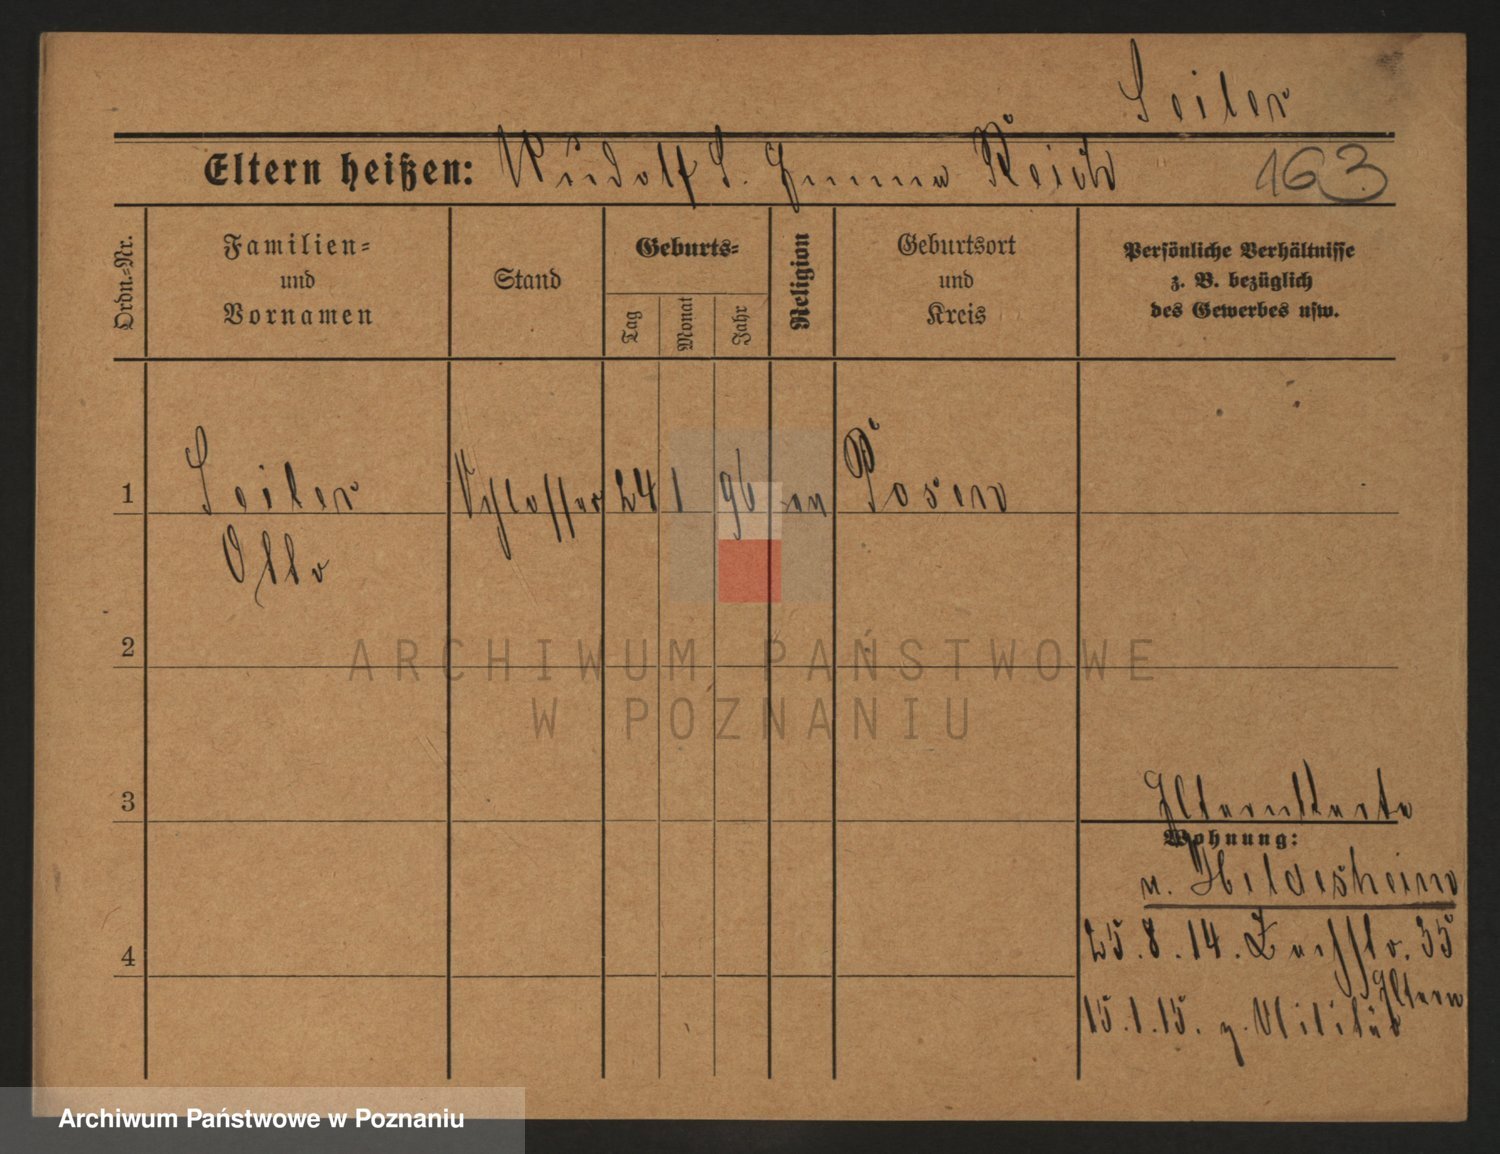 Seiler
Eltern heißen: Rudolf S. Emma Reich 163
Ordn.-Nr.
Familien-
und
Vornamen
Stand
Geburts-
Tag
Monat
Jahr
Religion
Geburtsort
und
Kreis
Persönliche Verhältnisse
z. B. bezüglich
des Gewerbes usw.
1 Seiler Schlosser 24 1 96 ev Posen
Otto
2
3
Elternkarte
Wohnung:
n. Hildesheim
4
25.8.14. 35
Eltern
15.1.15. z. Militär
ARCHIWUM PAŃSTWOWE
W POZNANIU
Archiwum Państwowe w Poznaniu